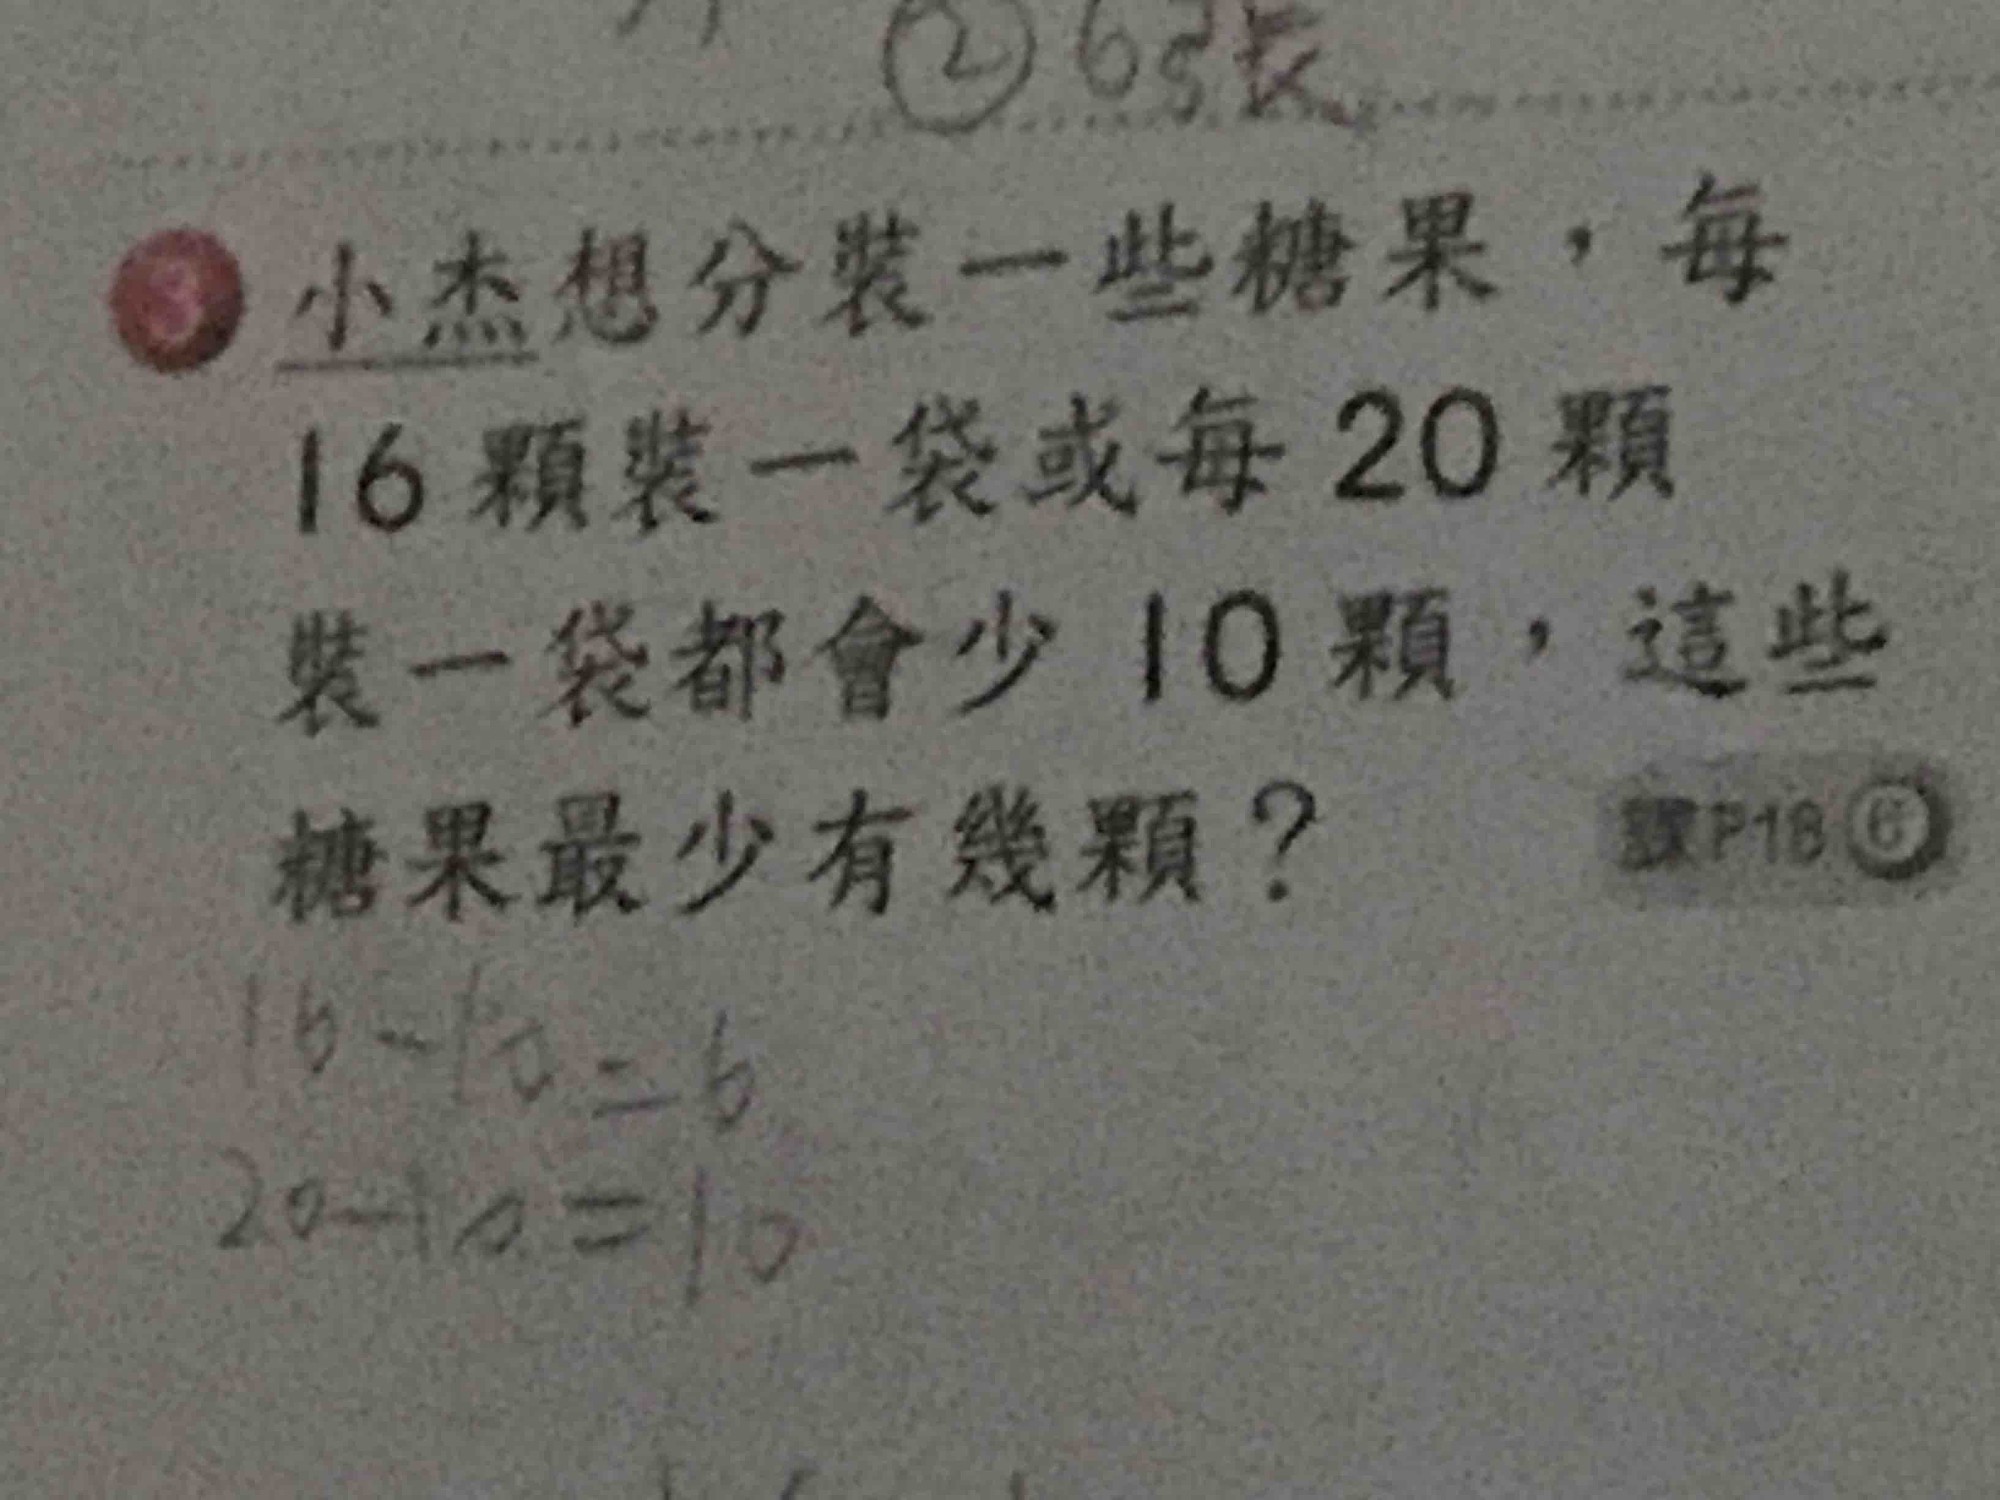 ②63張
3 小杰想分裝一些糖果，每
16顆裝一袋或每20顆
裝一袋都會少10顆，這些
糖果最少有幾顆？
課P18 6
16-10=6
20-10=10